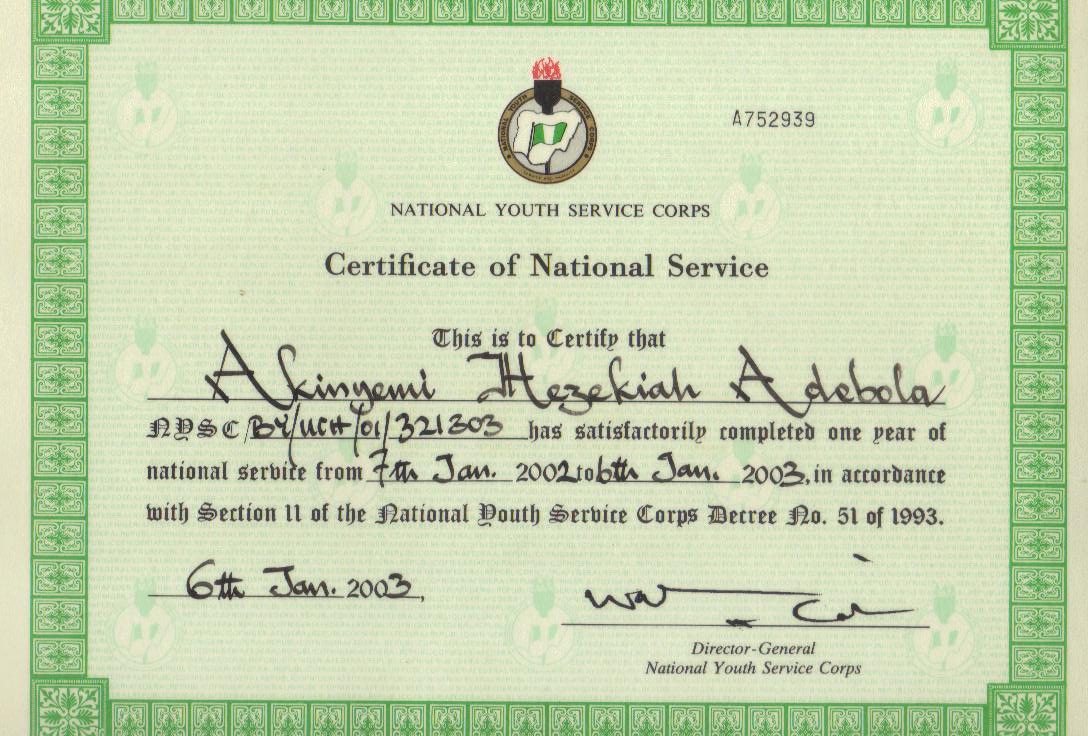 A752939
NATIONAL YOUTH SERVICE CORPS
NATIONAL YOUTH SERVICE CORPS
Certificate of National Service
This is to Certify that
Akinyemi Hezekiah Adebola
NYSC/BY/UCH/01/321303 has satisfactorily completed one year of
national service from 7th Jan. 2002 to 6th Jan. 2003, in accordance
with Section 11 of the National Youth Service Corps Decree No. 51 of 1993.
6th Jan. 2003,
Director-General
National Youth Service Corps